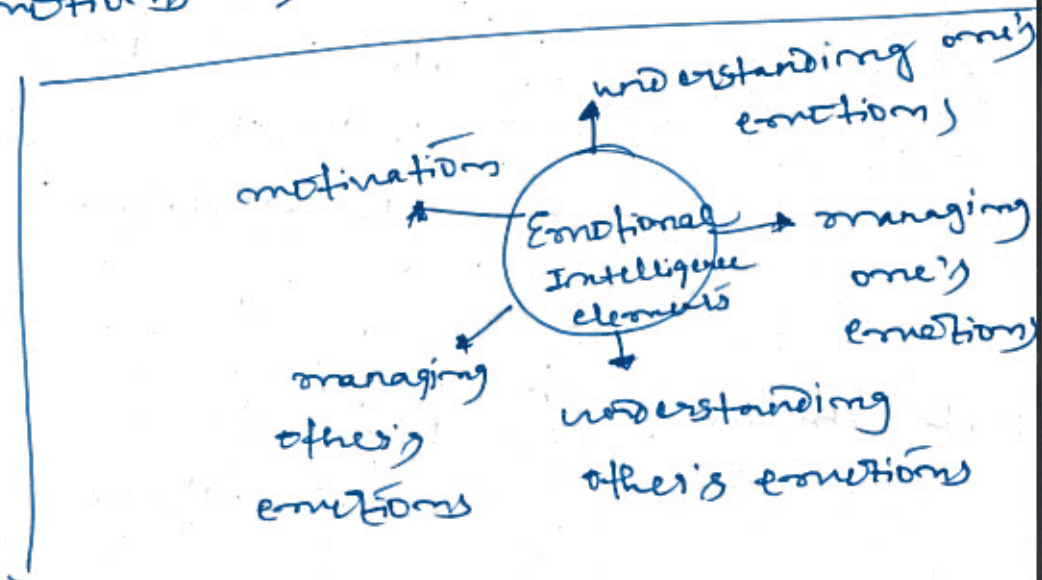 understanding one's
emotions
motivations
Emotional
Intelligence
elements
managing
one's
emotions
managing
other's
emotions
understanding
other's emotions